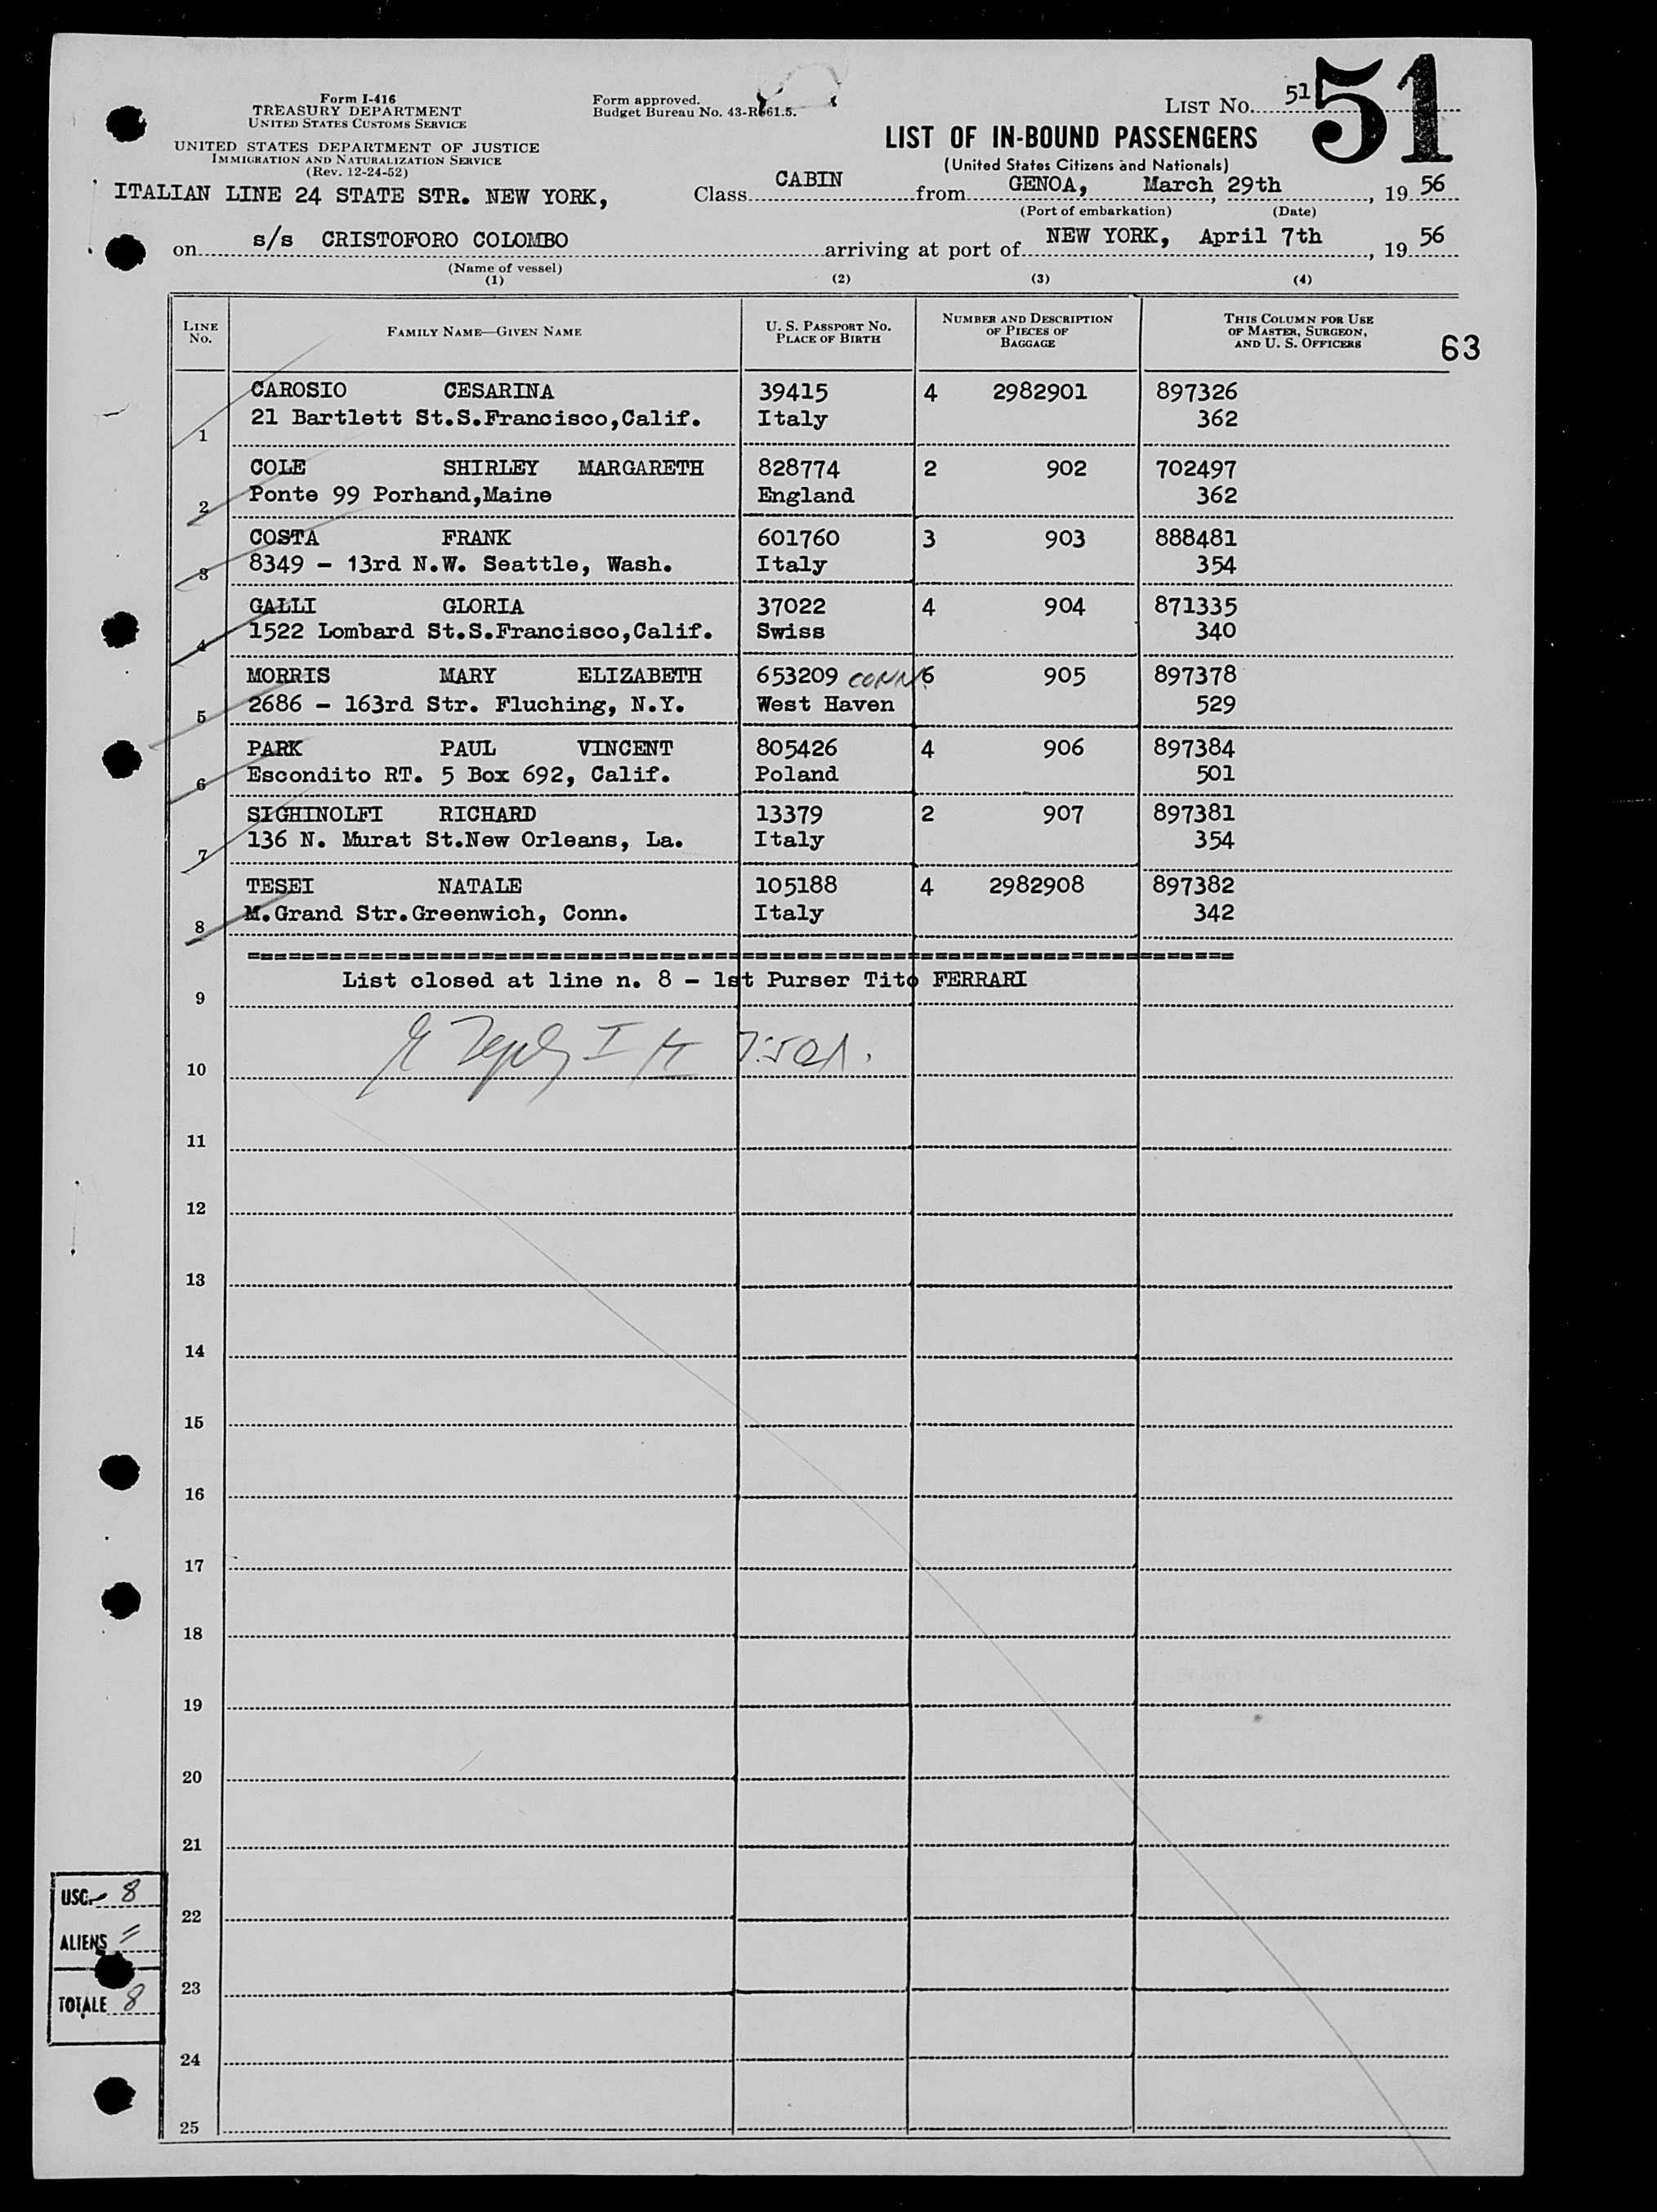 Form I-416
TREASURY DEPARTMENT
UNITED STATES CUSTOMS SERVICE
UNITED STATES DEPARTMENT OF JUSTICE
IMMIGRATION AND NATURALIZATION SERVICE
(Rev. 12-24-52)
Form approved.
Budget Bureau No. 43-R061.5.
LIST NO. 51
51
LIST OF IN-BOUND PASSENGERS
(United States Citizens and Nationals)
ITALIAN LINE 24 STATE STR. NEW YORK, Class CABIN from GENOA, March 29th, 19 56
(Port of embarkation) (Date)
on s/s CRISTOFORO COLOMBO arriving at port of NEW YORK, April 7th, 19 56
(Name of vessel)
(1) (2) (3) (4)
LINE NO. FAMILY NAME—GIVEN NAME U. S. PASSPORT NO. PLACE OF BIRTH NUMBER AND DESCRIPTION OF PIECES OF BAGGAGE THIS COLUMN FOR USE OF MASTER, SURGEON, AND U. S. OFFICERS 63
CAROSIO CESARINA 39415 4 2982901 897326
1 21 Bartlett St.S.Francisco,Calif. Italy 362
COLE SHIRLEY MARGARETH 828774 2 902 702497
2 Ponte 99 Porhand,Maine England 362
COSTA FRANK 601760 3 903 888481
3 8349 - 13rd N.W. Seattle, Wash. Italy 354
GALLI GLORIA 37022 4 904 871335
4 1522 Lombard St.S.Francisco,Calif. Swiss 340
MORRIS MARY ELIZABETH 653209 CONN. 6 905 897378
5 2686 - 163rd Str. Fluching, N.Y. West Haven 529
PARK PAUL VINCENT 805426 4 906 897384
6 Escondito RT. 5 Box 692, Calif. Poland 501
SIGHINOLFI RICHARD 13379 2 907 897381
7 136 N. Murat St.New Orleans, La. Italy 354
TESEI NATALE 105188 4 2982908 897382
8 M.Grand Str.Greenwich, Conn. Italy 342
List closed at line n. 8 - 1st Purser Tito FERRARI
9
10
11
12
13
14
15
16
17
18
19
20
21
22
23
24
25
USC. 8
ALIENS =
TOTALE 8